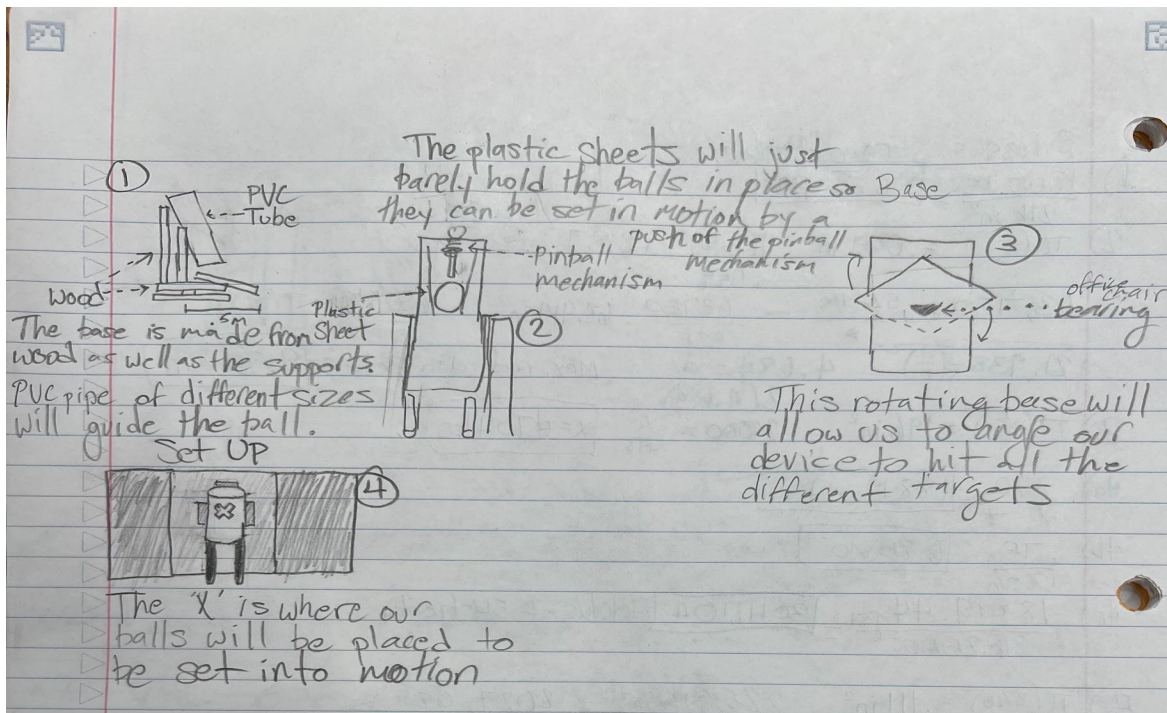 ①
PVC
Tube
Wood
.5m
The base is made from
wood as well as the supports.
PVC pipe of different sizes
will guide the ball.
The plastic sheets will just
barely hold the balls in place so
they can be set in motion by a
push of the pinball
mechanism
Pinball
mechanism
Plastic
Sheet
②
Base
③
office chair
bearing
This rotating base will
allow us to angle our
device to hit all the
different targets
Set UP
④
The 'X' is where our
balls will be placed to
be set into motion